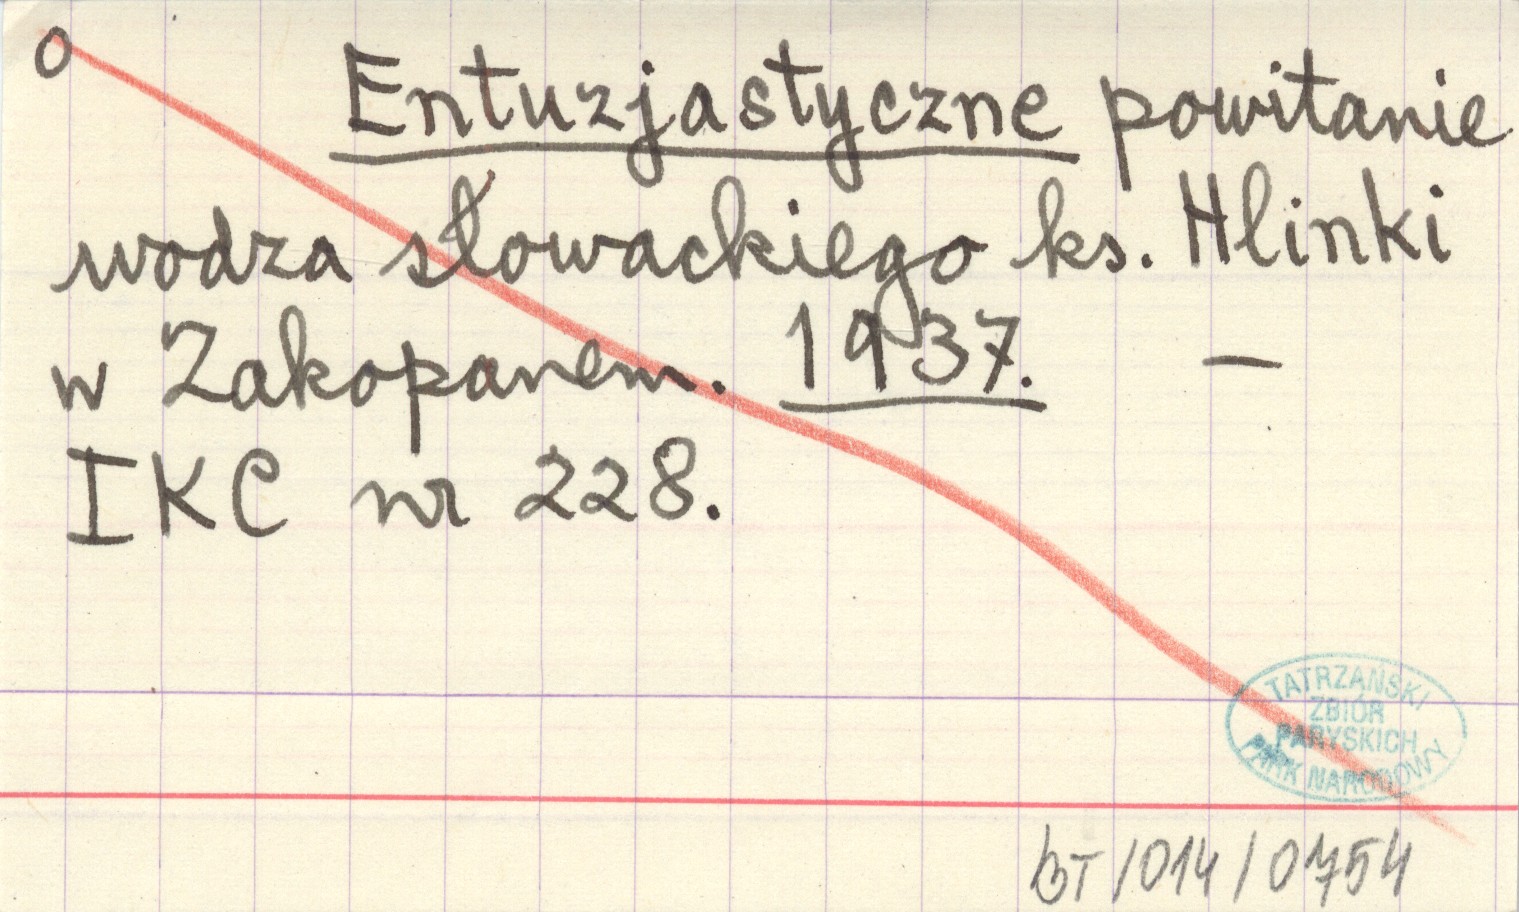 O
Entuzjastyczne powitanie
wodza słowackiego ks. Hlinki
w Zakopanem. 1937. —
IKC nr 228.
TATRZAŃSKI
ZBIÓR
PARYSKICH
PARK NARODOWY
bT/014/0754